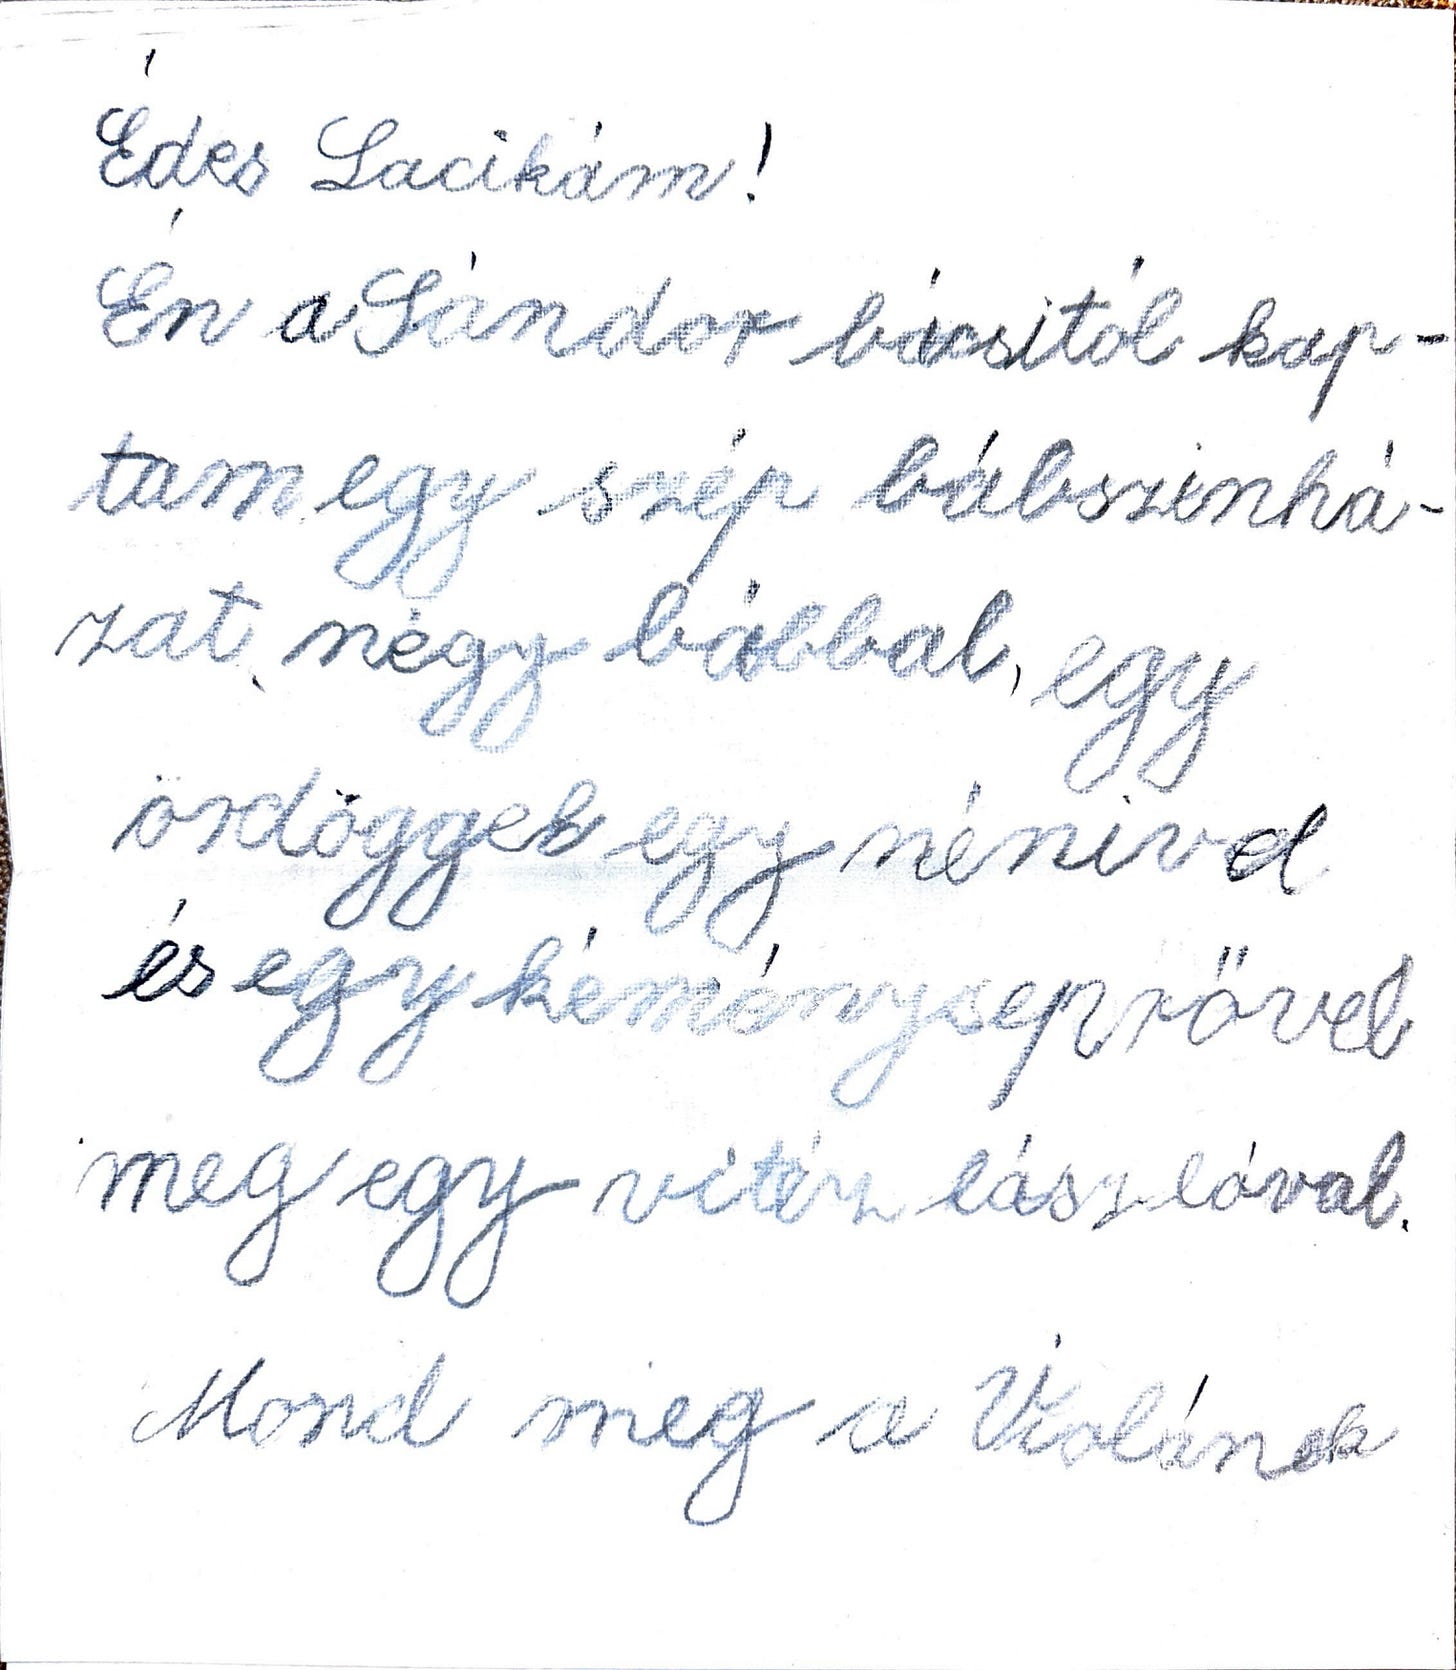 Édes Lacikám!
Én a Sándor bácsitól kap-
tam egy szép bábszinhá-
zat, négy bábbal, egy
ördöggyel egy nénivel
és egy kéményseprövel
meg egy vitéz lászlóval.
Mond meg a Violának